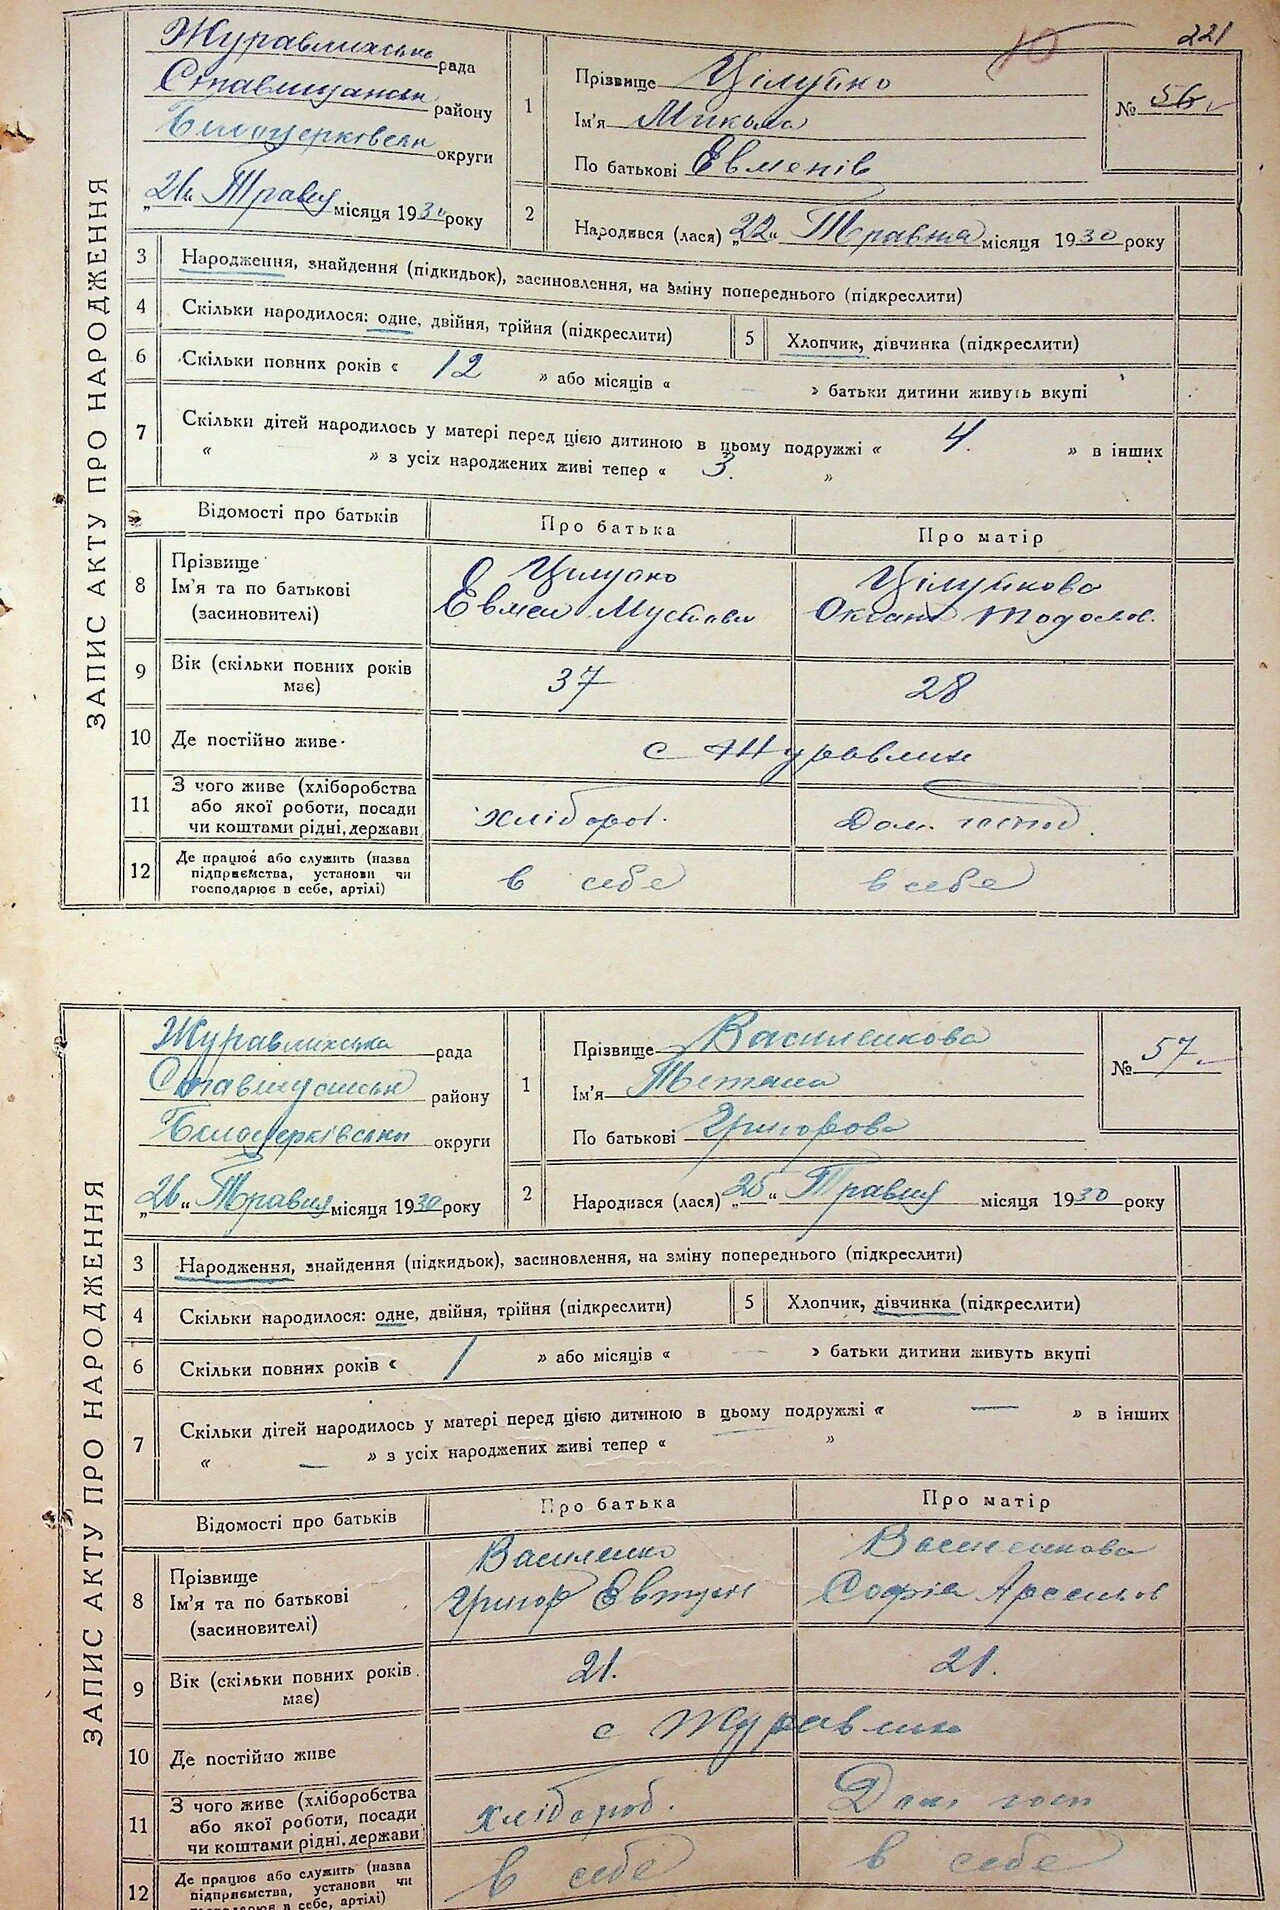 221
10
ЗАПИС АКТУ ПРО НАРОДЖЕННЯ
Журавлихська рада
Ставищанськ району
Білоцерковськ округи
„26“ Травня місяця 1930 року
1 Прізвище Цілуйко
Ім'я Микола
По батькові Евменів
№ 56
2 Народився (лася) „22“ Травня місяця 1930 року
3 Народження, знайдення (підкидьок), засиновлення, на зміну попереднього (підкреслити)
4 Скільки народилося: одне, двійня, трійня (підкреслити) 5 Хлопчик, дівчинка (підкреслити)
6 Скільки повних років « 12 » або місяців « — » батьки дитини живуть вкупі
7 Скільки дітей народилось у матері перед цією дитиною в цьому подружжі « 4. » в інших
« » з усіх народжених живі тепер « 3. »
Відомості про батьків Про батька Про матір
8 Прізвище Ім'я та по батькові (засиновителі)
Цілуйко Цілуйкова
Евмен Оксана Тодосов.
9 Вік (скільки повних років має) 37 28
10 Де постійно живе с Журавлих
11 З чого живе (хліборобства або якої роботи, посади чи коштами рідні, держави
хлібороб. Дом. господ.
12 Де працює або служить (назва підприємства, установи чи господарює в себе, артілі)
в себе в себе
ЗАПИС АКТУ ПРО НАРОДЖЕННЯ
Журавлихська рада
Ставищанськ району
Білоцерківськ округи
„26“ Травня місяця 1930 року
1 Прізвище Василенкова
Ім'я Тетяна
По батькові Григорова
№ 57
2 Народився (лася) „25“ Травня місяця 1930 року
3 Народження, знайдення (підкидьок), засиновлення, на зміну попереднього (підкреслити)
4 Скільки народилося: одне, двійня, трійня (підкреслити) 5 Хлопчик, дівчинка (підкреслити)
6 Скільки повних років « 1 » або місяців « — » батьки дитини живуть вкупі
7 Скільки дітей народилось у матері перед цією дитиною в цьому подружжі « — » в інших
« — » з усіх народжених живі тепер « »
Відомості про батьків Про батька Про матір
8 Прізвище Ім'я та по батькові (засиновителі)
Василенко Василенкова
Григор Евтух Софія Арсенов
9 Вік (скільки повних років має) 21. 21.
10 Де постійно живе с Журавлиха
11 З чого живе (хліборобства або якої роботи, посади чи коштами рідні, держави
хлібороб. Дом госп
12 Де працює або служить (назва підприємства, установи чи господарює в себе, артілі)
в себе в себе